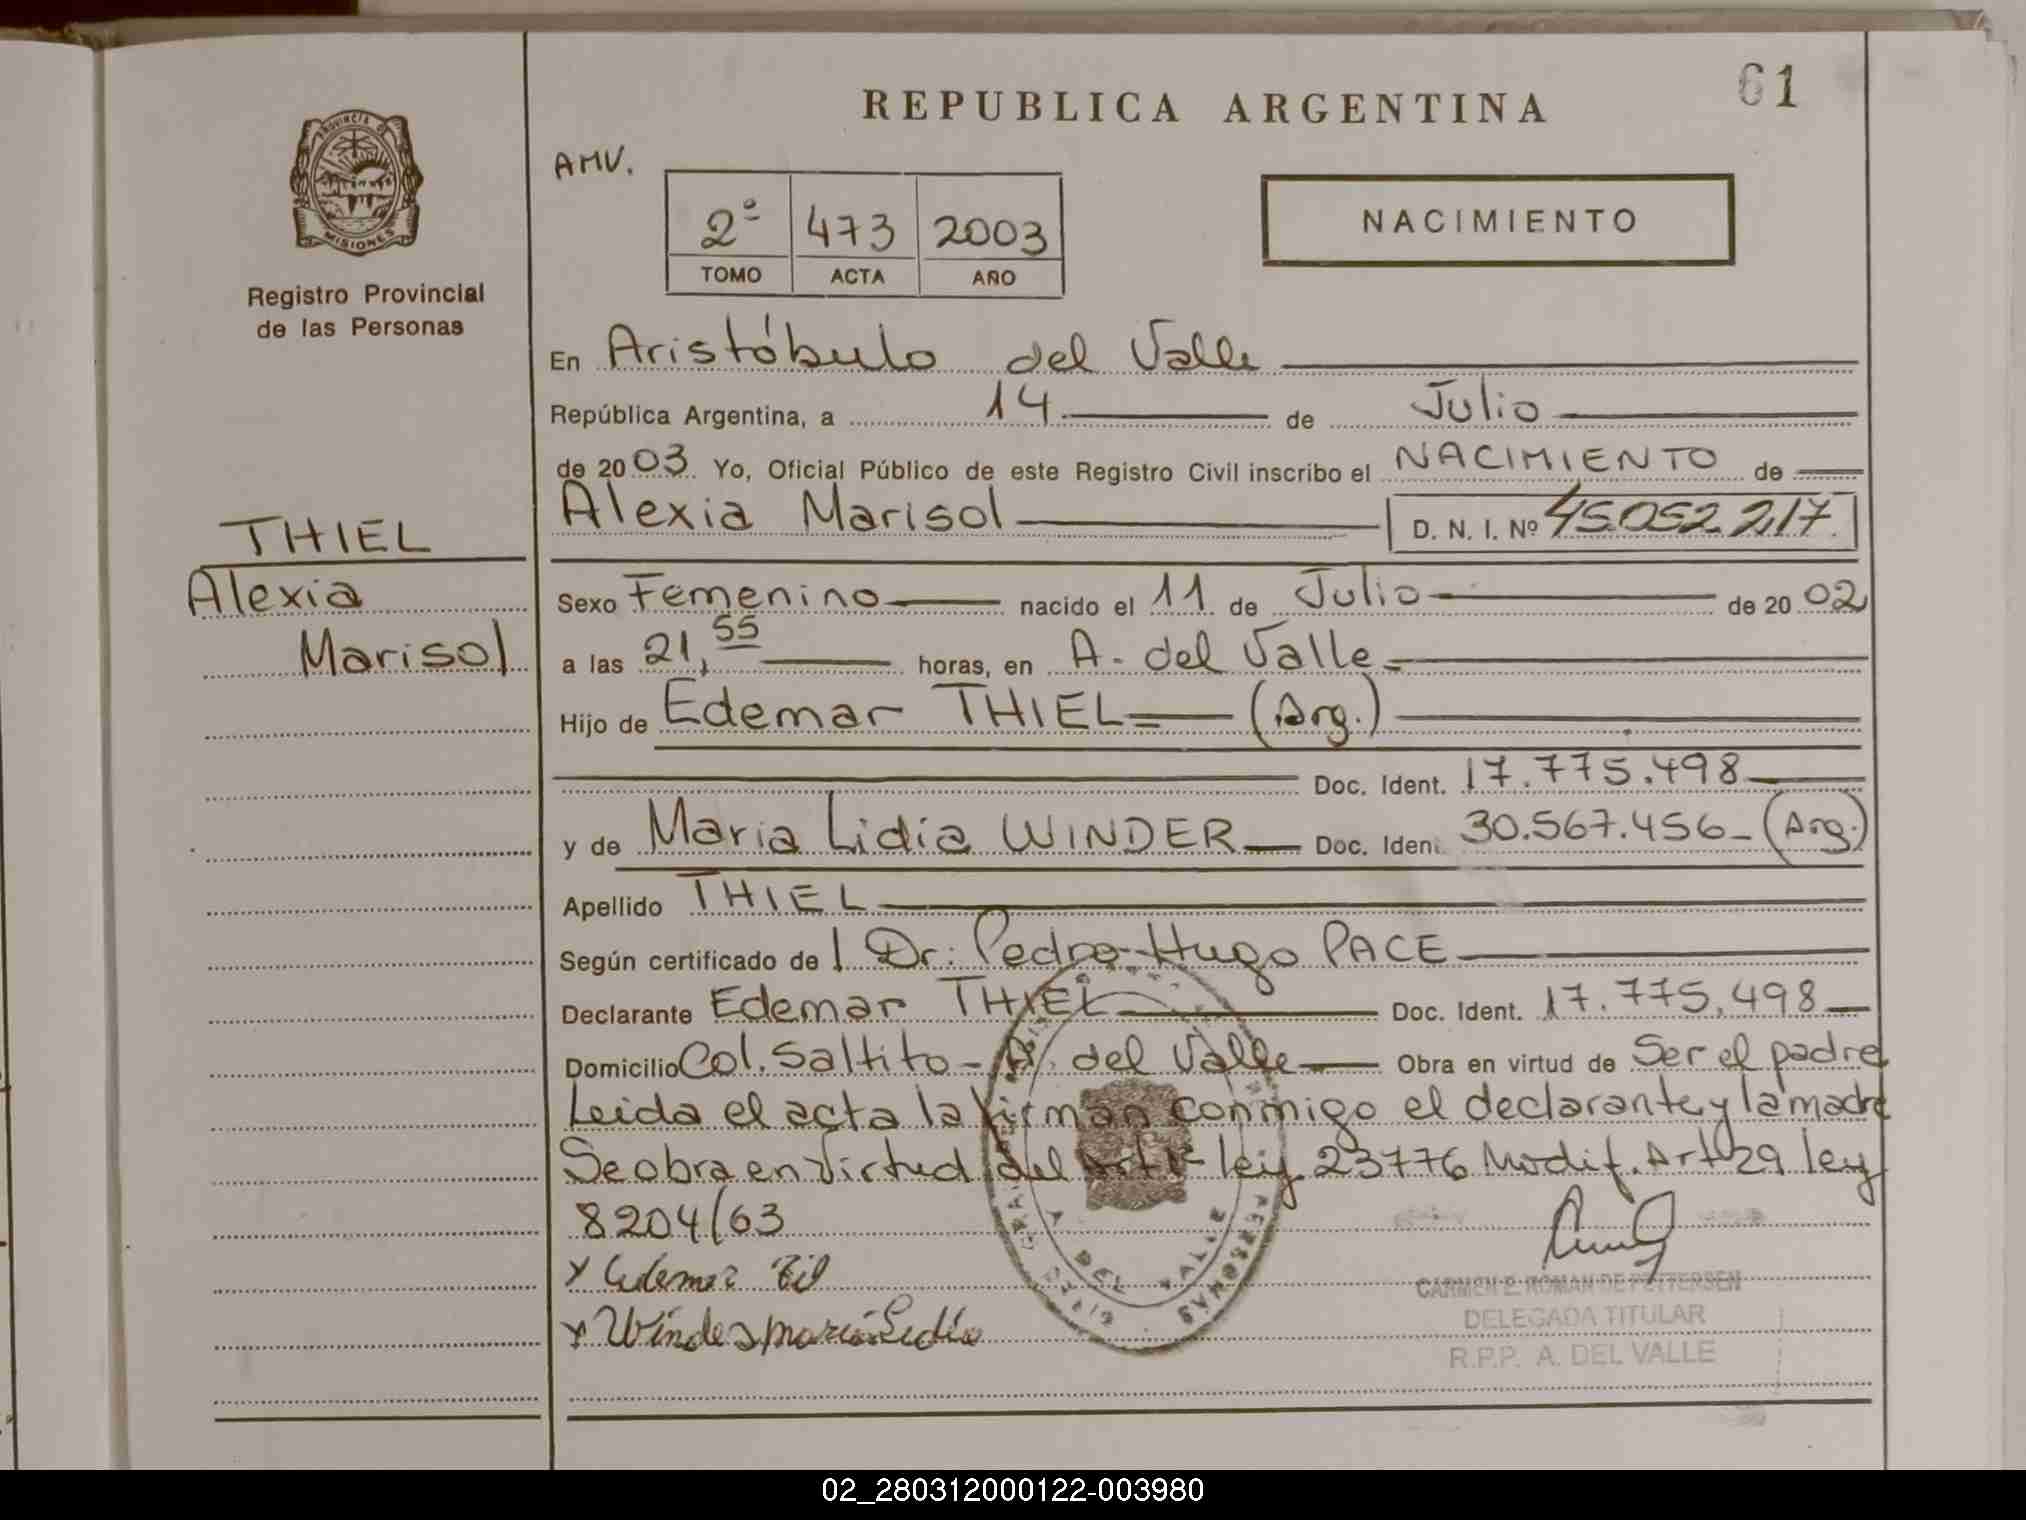 61
REPUBLICA ARGENTINA
PROVINCIA DE
MISIONES
Registro Provincial
de las Personas
AMV.
2º 473 2003
TOMO ACTA AÑO
NACIMIENTO
En Aristóbulo del Valle
República Argentina, a 14 de Julio
de 2003 Yo, Oficial Público de este Registro Civil inscribo el NACIMIENTO de
Alexia Marisol D. N. I. Nº 45.052.217.
THIEL
Alexia
Marisol
Sexo Femenino nacido el 11 de Julio de 2002
a las 21,55 horas, en A. del Valle
Hijo de Edemar THIEL (Arg.)
Doc. Ident. 17.775.498
y de Maria Lidia WINDER Doc. Ident. 30.567.456 (Arg.)
Apellido THIEL
Según certificado del Dr: Pedro Hugo PACE
Declarante Edemar THIEL Doc. Ident. 17.775.498
Domicilio Col. Saltito - A. del Valle Obra en virtud de Ser el padre
Leida el acta la firman conmigo el declarante y la madre
Se obra en virtud del Art 1º ley 23776 Modif. Art 29 ley
8204/63
x Edemar
x Winder maria Lidia
A DEL VALLE
PERSONAS
CARMEN E. ROMAN DE PETTERSEN
DELEGADA TITULAR
R.P.P. A. DEL VALLE
02_280312000122-003980